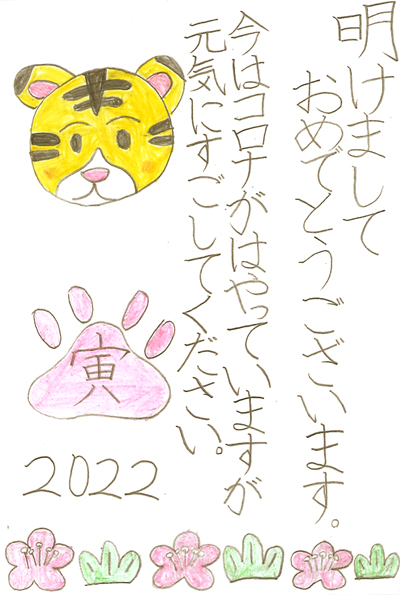 明けまして
おめでとうございます。
今はコロナがはやっていますが
元気にすごしてください。
寅
2022